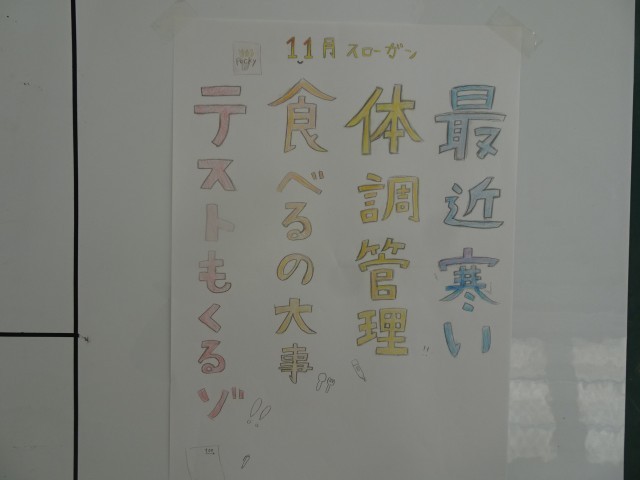 11月 スローガン
最近寒い
体調管理
食べるの大事
テストもくるゾ!!